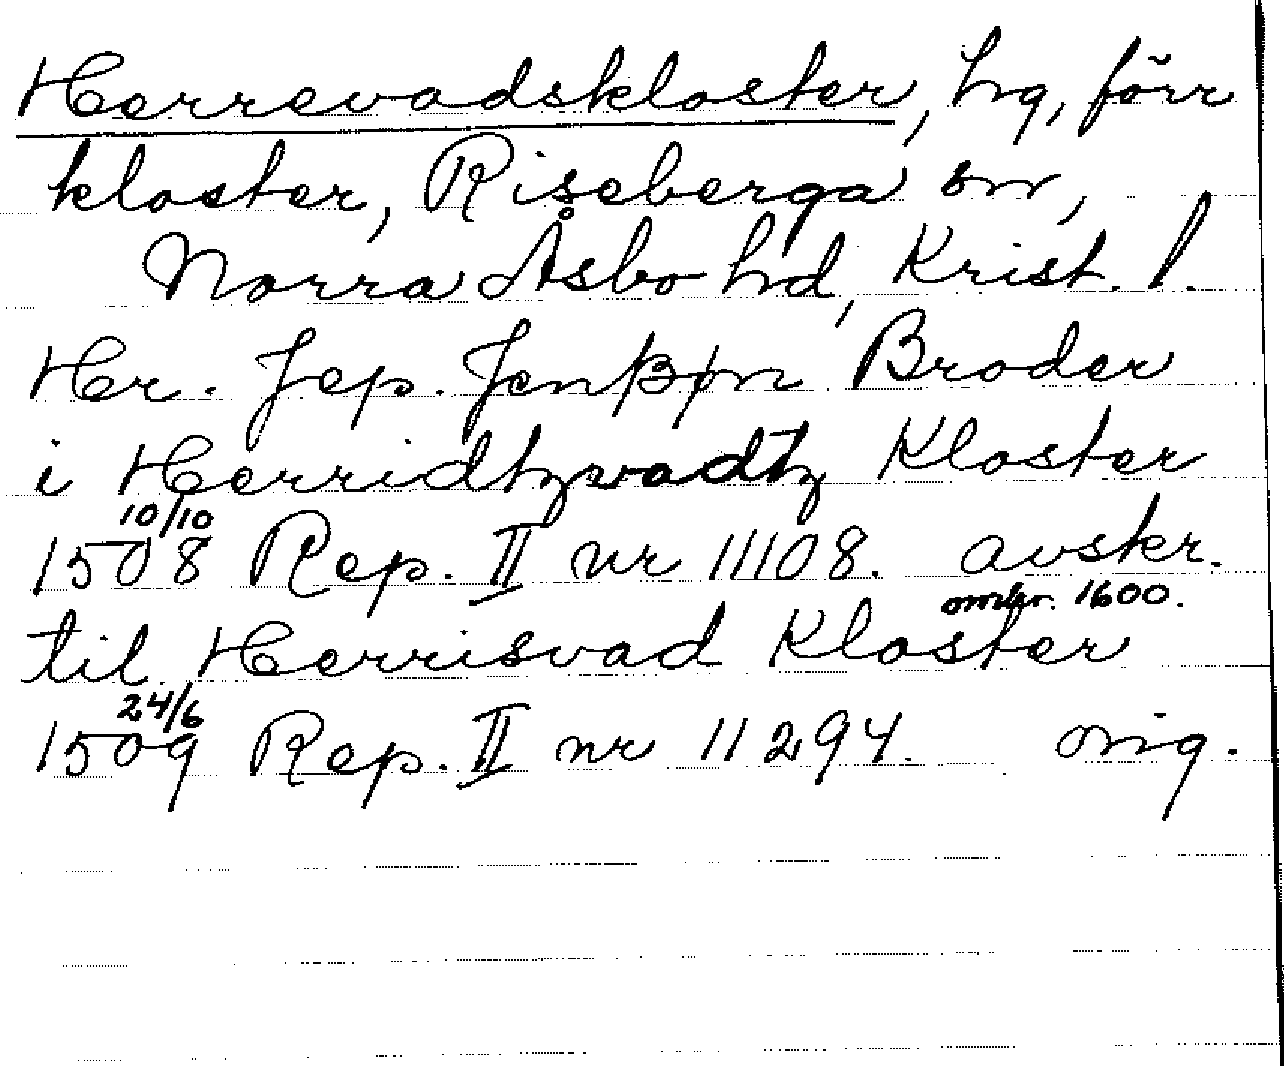 Herrevadskloster, hg, förr
kloster, Riseberga sn,
Norra Åsbo hd, Krist. l.
Her. Jep. Jenßøn Broder
i Herridtzvadtz Kloster
10/10
1508 Rep. II nr 11108. avskr.
omkr. 1600.
til Herrisvad Kloster
24/6
1509 Rep. II nr 11294. orig.